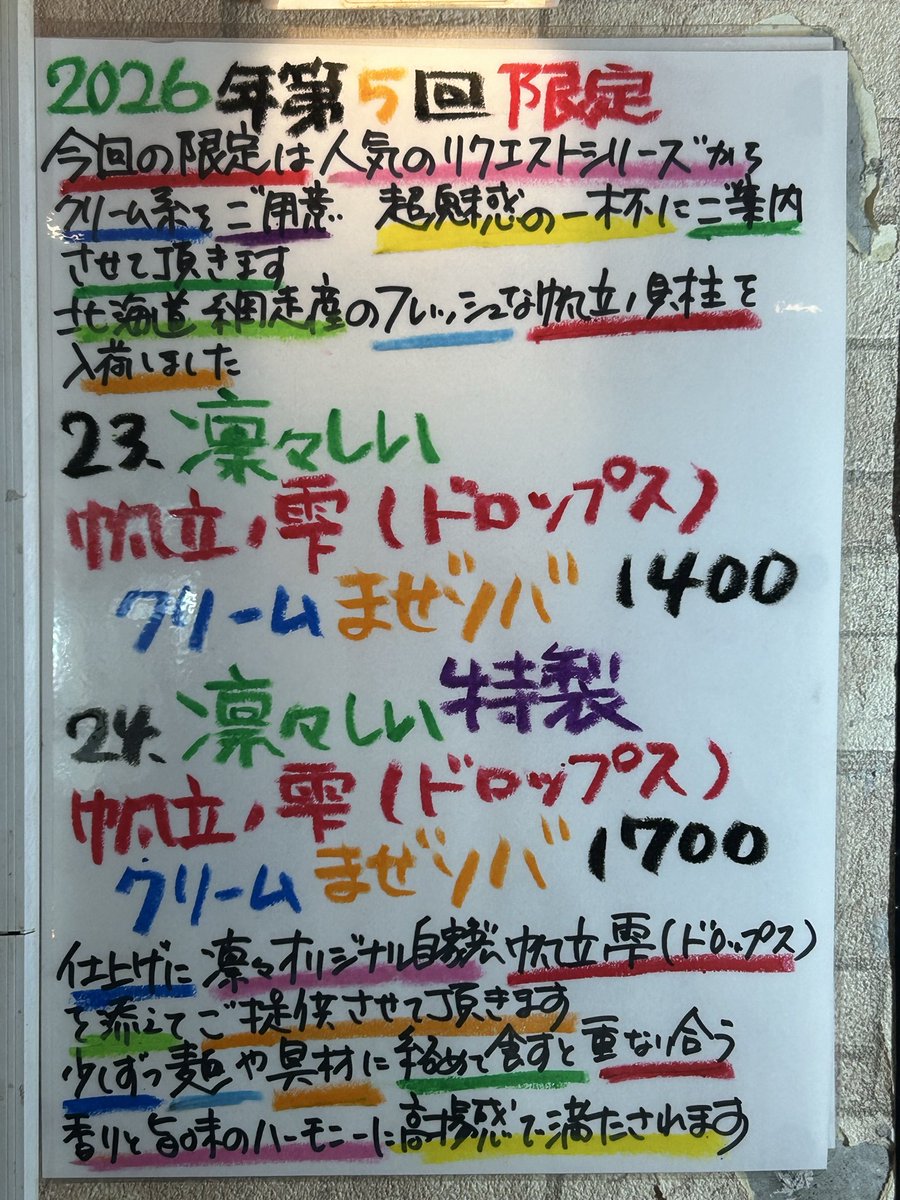 2026年第5回限定
今回の限定は人気のリクエストシリーズから
クリーム系をご用意 超魅惑の一杯にご案内
させて頂きます
北海道網走産のフレッシュな帆立ノ貝柱を
入荷しました
23、凛々しい
帆立ノ雫(ドロップス)
クリームまぜソバ 1400
24、凛々しい特製
帆立ノ雫(ドロップス)
クリームまぜソバ 1700
仕上げに凛々オリジナル自家製帆立雫(ドロップス)
を添えてご提供させて頂きます
少しずつ麺や具材に絡めて食すと重なり合う
香りと旨味のハーモニーに高揚感で満たされます